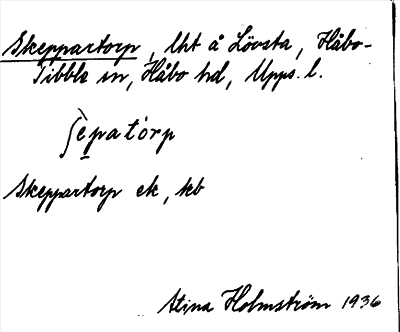 Skeppartorp, lht å Lövsta, Håbo-
Tibble sn, Håbo hd, Upps. l.
ʃèpatórp
Skeppartorp ek, kb
Stina Holmström 1936